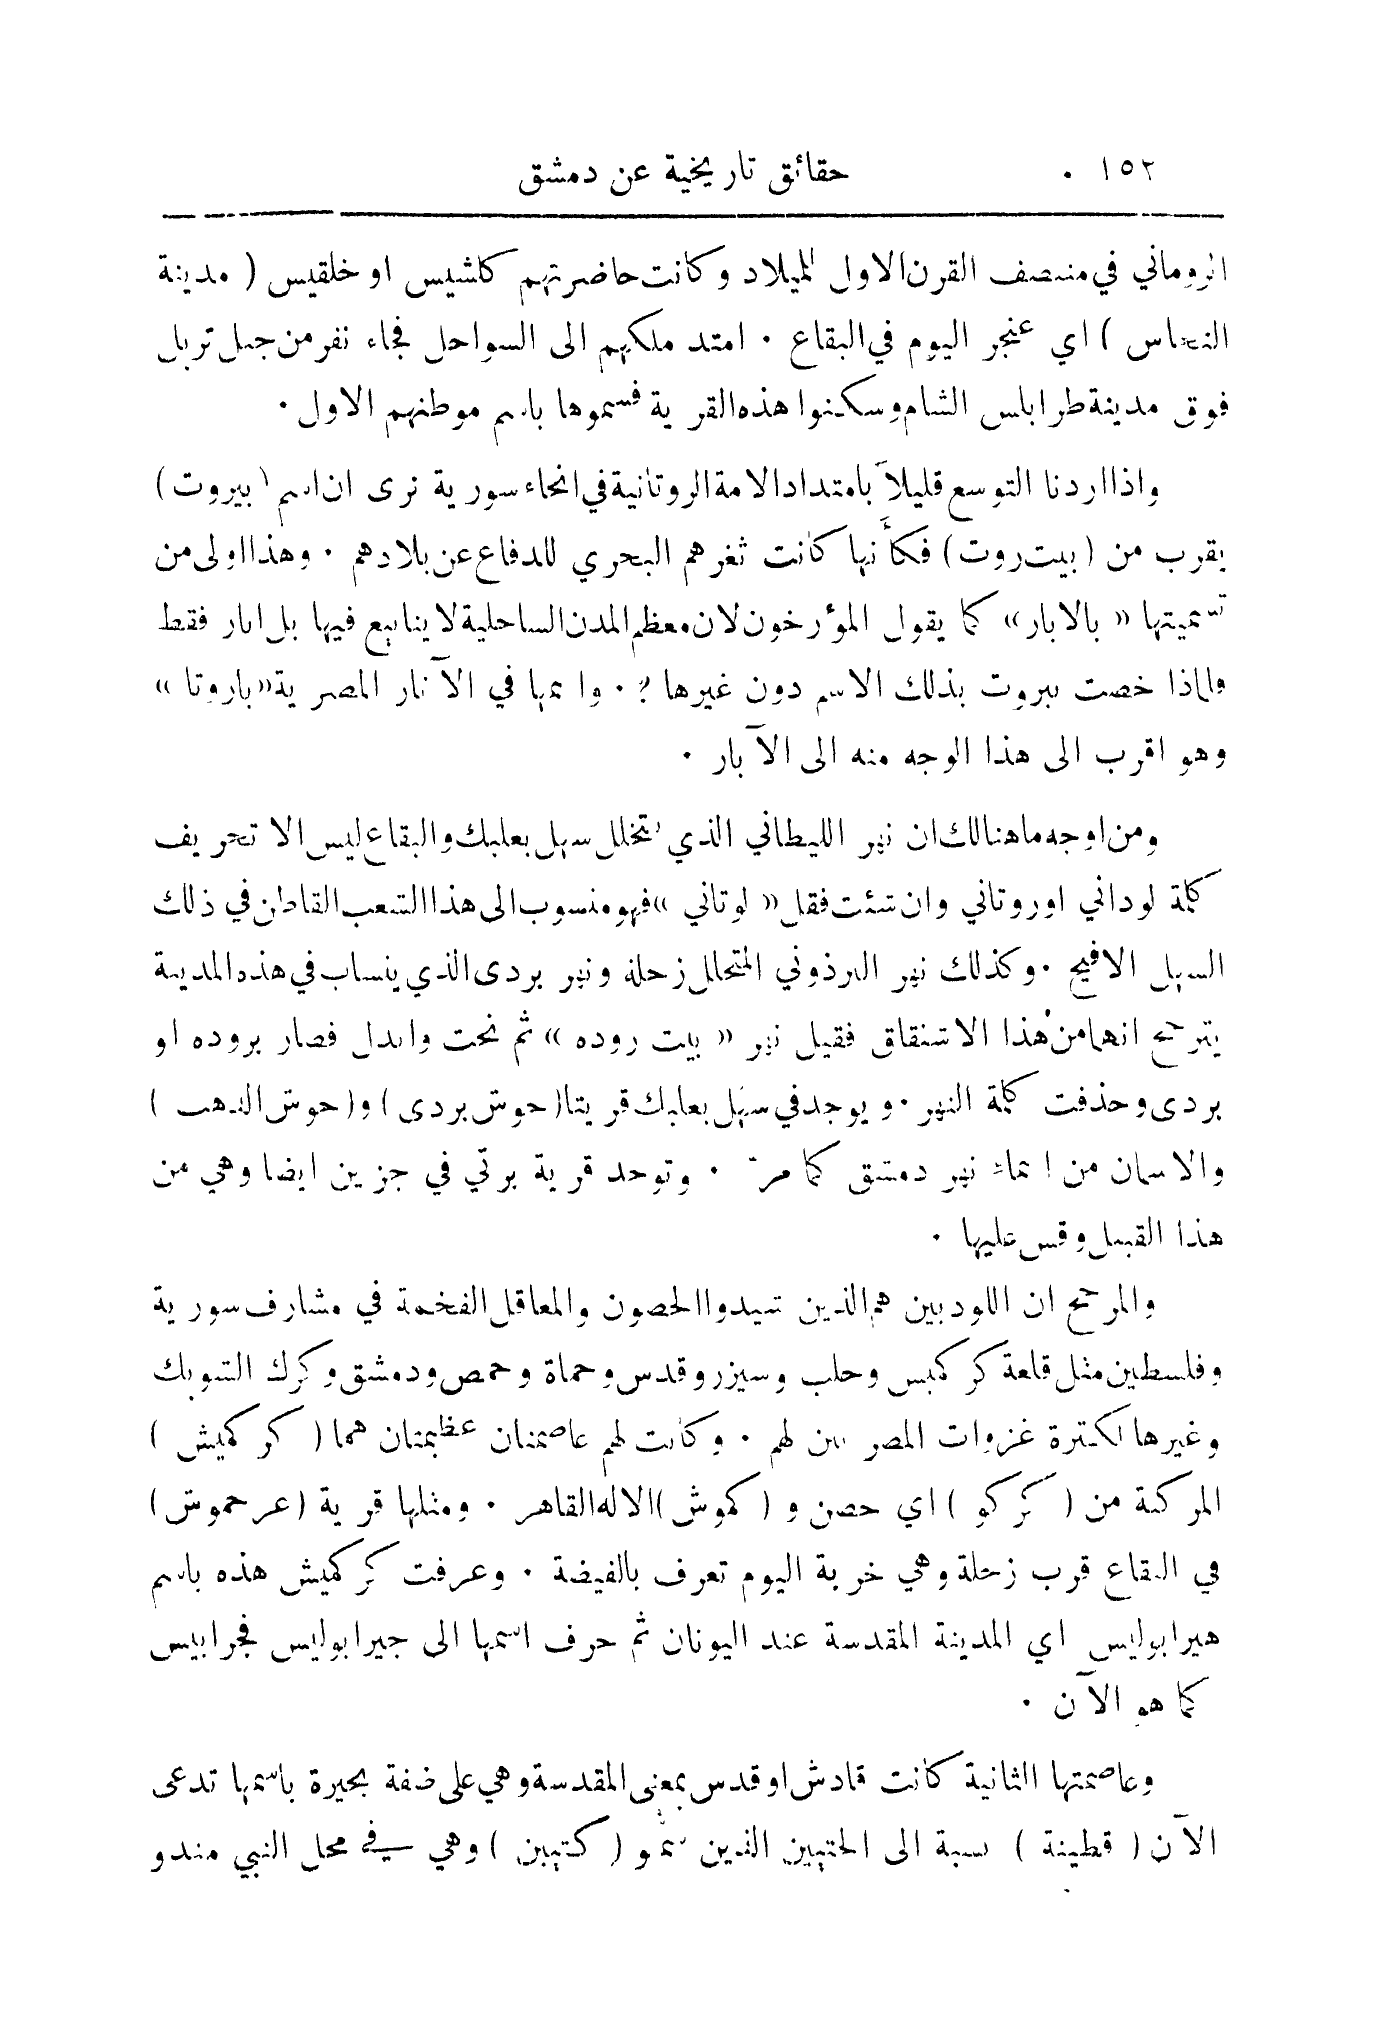 ١٥٢ . حقائق تاريخية عن دمشق
الروماني في منتصف القرن الاول للميلاد وكانت حاضرتهم كلشيس او خلقيس ( مدينة
النحاس ) اي عنجر اليوم في البقاع . امتد ملكهم الى السواحل فجاء نفر من جبل تربل
فوق مدينة طرابلس الشام وسكنوا هذه القرية فسموها باسم موطنهم الاول .
واذا اردنا التوسع قليلاً بامتداد الامة الروتانية في انحاء سورية نرى ان اسم ( بيروت )
يقرب من ( بيت روت ) فكأنها كانت ثغرهم البحري للدفاع عن بلادهم . وهذا اولى من
تسميتها « بالابار » كما يقول المؤرخون لان معظم المدن الساحلية لا ينابيع فيها بل ابار فقط
فلماذا خصت بيروت بذلك الاسم دون غيرها ؟ . واسمها في الآثار المصرية « باروتا »
وهو اقرب الى هذا الوجه منه الى الآبار .
ومن اوجه ما هنالك ان نهر الليطاني الذي يتخلل سهل بعلبك والبقاع ليس الا تحريف
كلمة لوداني او روتاني وان شئت فقل « لوتاني » فهو منسوب الى هذا الشعب القاطن في ذلك
السهل الافيح . وكذلك نهر البرذوني المتخلل زحلة ونهر بردى الذي ينساب في هذه المدينة
يترجح انهما من هذا الاشتقاق فقيل نهر « بيت روده » ثم نحت وابدل فصار بروده او
بردى وحذفت كلمة النهر . ويوجد في سهل بعلبك قريتا ( حوش بردى ) و ( حوش الذهب )
والاسمان من اسماء نهر دمشق كما مرّ . وتوجد قرية برتي في جزين ايضا وهي من
هذا القبيل وقس عليها .
والمرجح ان اللوديين هم الذين شيدوا الحصون والمعاقل الفخمة في مشارف سورية
وفلسطين مثل قلعة كركميس وحلب وسيزر وقدس وحماة وحمص ودمشق وكرك الشوبك
وغيرها لكثرة غزوات المصريين لهم . وكانت لهم عاصمتان عظيمتان هما ( كركميش )
المركبة من ( كركو ) اي حصن و ( كموش ) الاله القاهر . ومثلها قرية ( عرحموش )
في البقاع قرب زحلة وهي خربة اليوم تعرف بالفيضة . وعرفت كركميش هذه باسم
هيرابوليس اي المدينة المقدسة عند اليونان ثم حرف اسمها الى جيرابوليس فجرابيس
كما هو الآن .
وعاصمتها الثانية كانت قادش او قدس بمعنى المقدسة وهي على ضفة بحيرة باسمها تدعى
الآن ( قطينة ) نسبة الى الحثيين الذين سموا ( كتيين ) وهي في محل النبي مندو